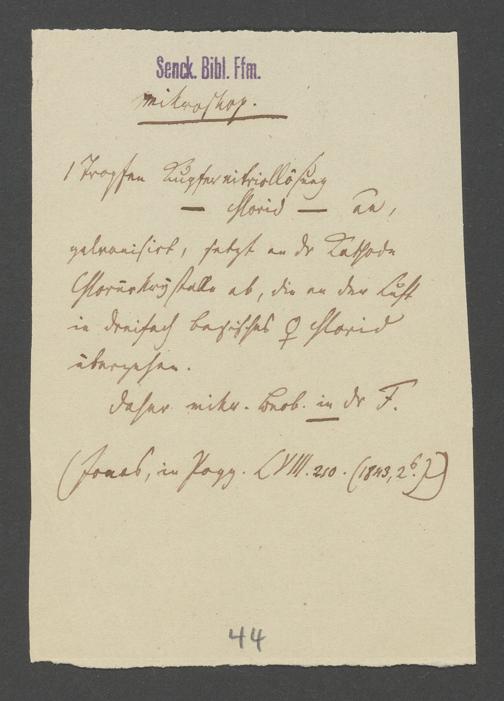 Senck. Bibl. Ffm.
mikroskop.
1 Tropfen Kupfervitriollösung
— Chlorid — an,
galvanisirt, setzt an dr Kathode
Chlorürkrystalle ab, die an der Luft
in dreifach basisches ♀ Chlorid
übergehen.
daher mikr. Beob. in dr F.
(Jonas, in Pogg. LVIII. 210. (1843, 2b.))
44